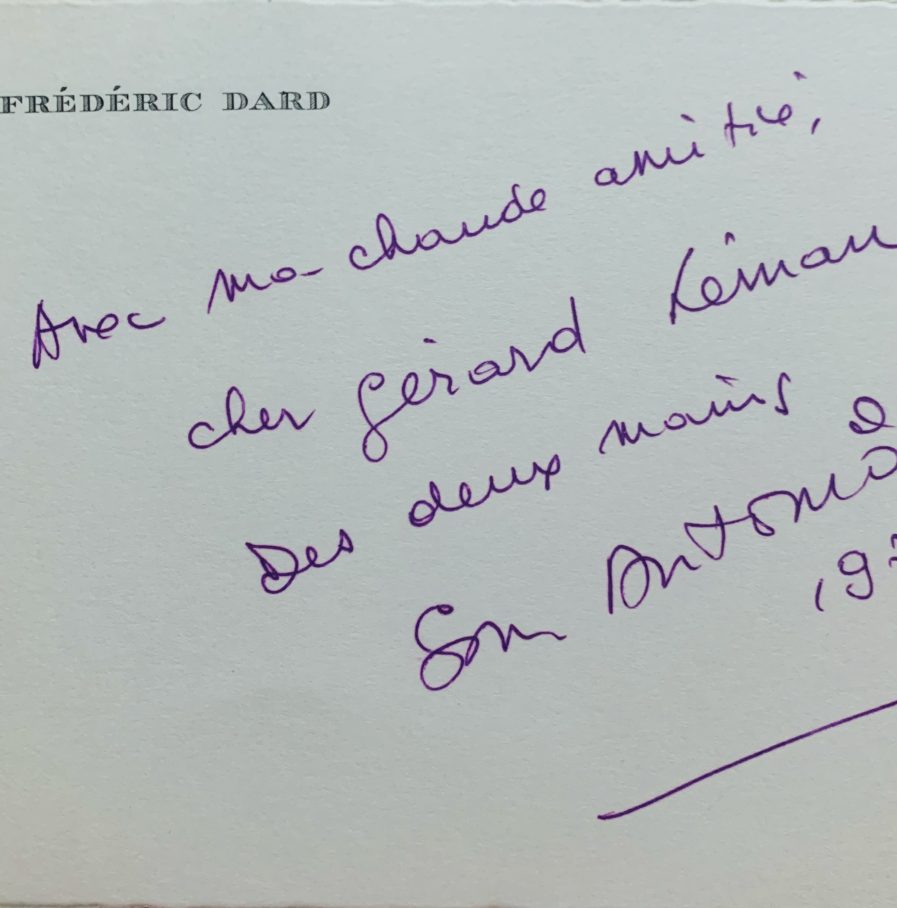 FRÉDÉRIC DARD
Avec ma chaude amitié,
cher Gérard Léman
Des deux mains de
San Antonio
197